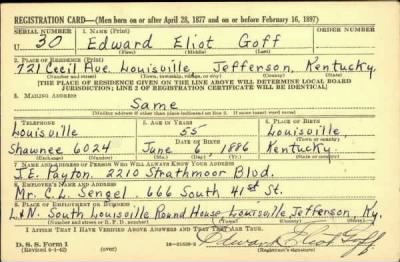 REGISTRATION CARD—(Men born on or after April 28, 1877 and on or before February 16, 1897)
SERIAL NUMBER 1. NAME (Print) ORDER NUMBER
U 30 Edward Eliot Goff
2. PLACE OF RESIDENCE (Print)
721 Cecil Ave. Louisville, Jefferson, Kentucky.
(Number and street) (Town, township, village, or city) (County) (State)
[THE PLACE OF RESIDENCE GIVEN ON THE LINE ABOVE WILL DETERMINE LOCAL BOARD
JURISDICTION; LINE 2 OF REGISTRATION CERTIFICATE WILL BE IDENTICAL]
3. MAILING ADDRESS
Same
[Mailing address if other than place indicated on line 2. If same insert word same]
4. TELEPHONE 5. AGE IN YEARS 6. PLACE OF BIRTH
Louisville 55 Louisville
DATE OF BIRTH (Town or county)
Shawnee 6024 June 6, 1886 Kentucky.
(Exchange) (Number) (Mo.) (Day) (Yr.) (State or country)
7. NAME AND ADDRESS OF PERSON WHO WILL ALWAYS KNOW YOUR ADDRESS
J.E. Payton. 2210 Strathmoor Blvd.
8. EMPLOYER'S NAME AND ADDRESS
Mr. C.L. Sengel. 666 South 41st St.
9. PLACE OF EMPLOYMENT OR BUSINESS
L&N. South Louisville Round House Louisville Jefferson, Ky.
(Number and street or R. F. D. number) (Town) (County) (State)
I AFFIRM THAT I HAVE VERIFIED ABOVE ANSWERS AND THAT THEY ARE TRUE.
D. S. S. Form 1
(Revised 4-1-42) (over) Edward Eliot Goff.
(Registrant's signature)